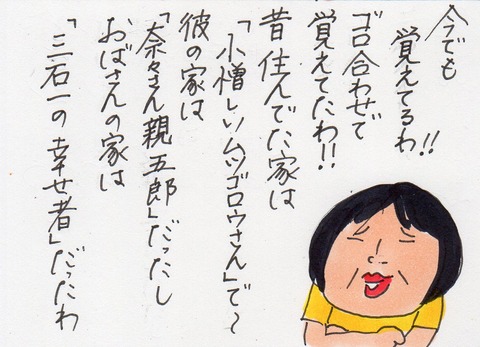 今でも
覚えてるわ!!
ゴロ合わせで
覚えてたわ!!
昔住んでた家は
「小憎しいムツゴロウさん」で〜
彼の家は
「奈々さん親五郎」だったし
おばさんの家は
「三石一の幸せ者」だったわ